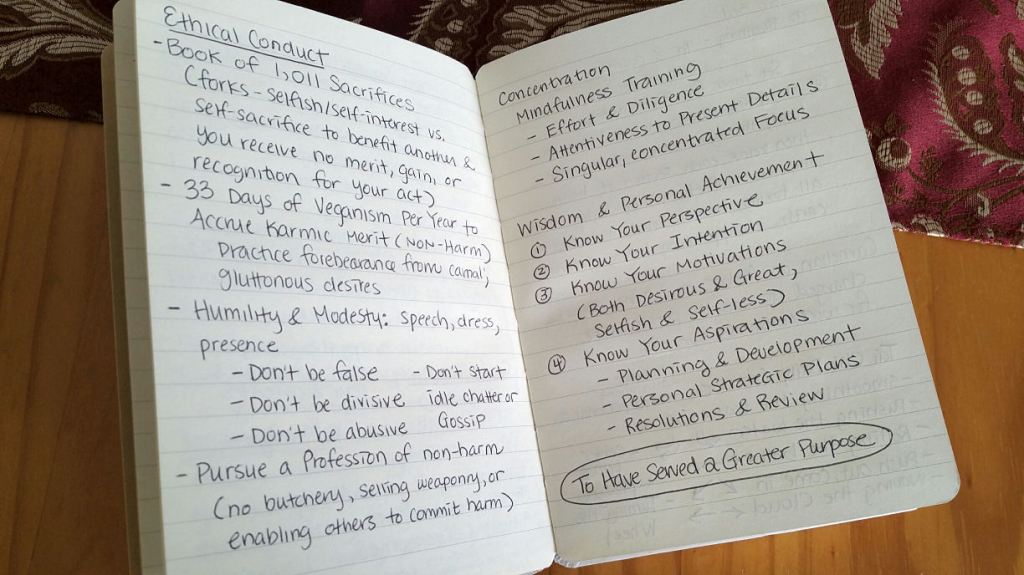 Ethical Conduct
- Book of 1,011 Sacrifices
(forks - selfish/self-interest vs.
self-sacrifice to benefit another &
you receive no merit, gain, or
recognition for your act)
- 33 Days of Veganism Per Year to
Accrue Karmic Merit (Non-Harm)
Practice forebearance from carnal,
gluttonous desires
- Humility & Modesty: speech, dress,
presence
- Don't be false - Don't start
- Don't be divisive idle chatter or
- Don't be abusive Gossip
- Pursue a Profession of non-harm
(no butchery, selling weaponry, or
enabling others to commit harm)
Concentration
Mindfulness Training
- Effort & Diligence
- Attentiveness to Present Details
- Singular, concentrated Focus
Wisdom & Personal Achievement
① Know Your Perspective
② Know Your Intention
③ Know Your Motivations
(Both Desirous & Great,
Selfish & Self-less)
④ Know Your Aspirations
- Planning & Development
- Personal Strategic Plans
- Resolutions & Review
To Have Served a Greater Purpose